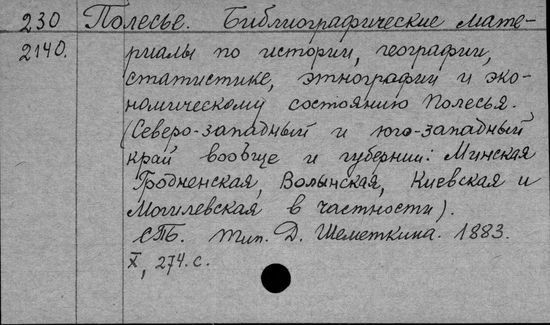 230 Полесье. Библиографические мате-
2140. риалы по истории, географии,
статистике, этнографии и эко-
номическому состоянию Полесья.
(Северо-западный и юго-западный
край вообще и губернии: Минская
Гродненская, Волынская, Киевская и
Могилевская в частности).
СПБ. тип. Д. Шеметкина. 1883.
X, 274. с.